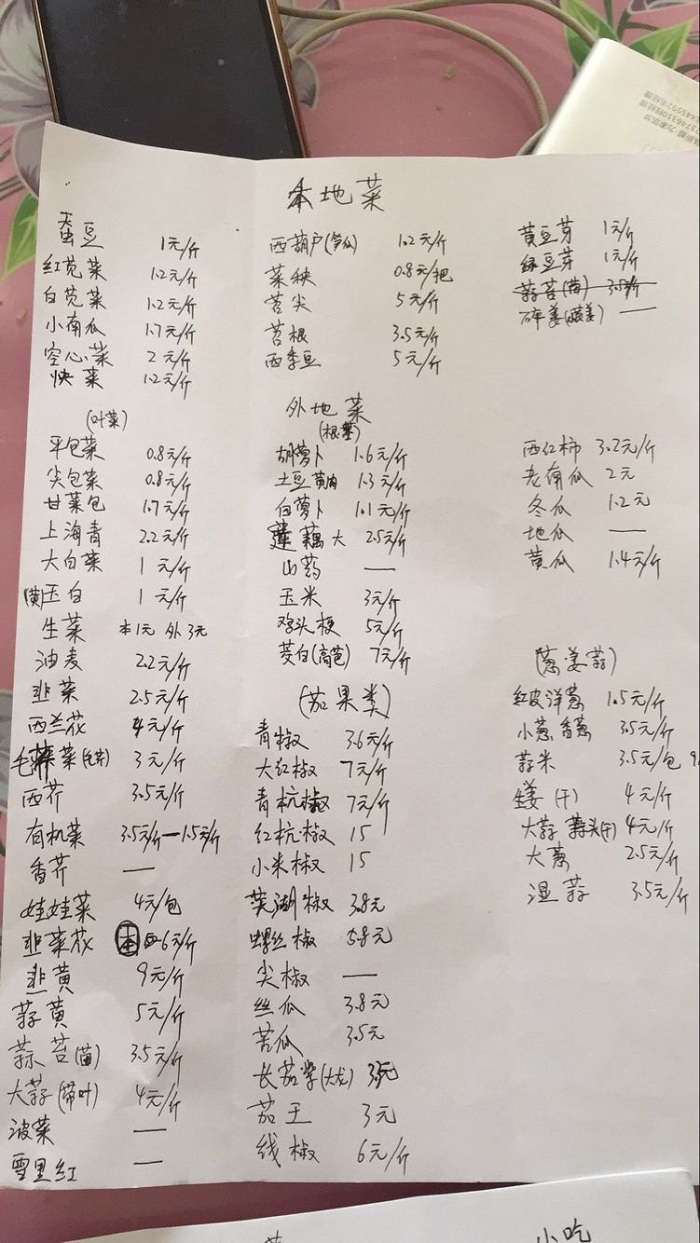 本地菜
蚕豆 1元/斤
红苋菜 1.2元/斤
白苋菜 1.2元/斤
小南瓜 1.7元/斤
空心菜 2元/斤
快菜 1.2元/斤
西葫户(笋瓜) 1.2元/斤
菜秧 0.8元/把
苔尖 5元/斤
苔根 3.5元/斤
西季豆 5元/斤
黄豆芽 1元/斤
绿豆芽 1元/斤
蒜苔(苗) 3.5/斤
碎姜 —
外地菜
(叶菜)
平包菜 0.8元/斤
尖包菜 0.8元/斤
甘菜包 1.7元/斤
上海青 2.2元/斤
大白菜 1元/斤
(黄)玉白 1元/斤
生菜 本1元 外3元
油麦 2.2元/斤
韭菜 2.5元/斤
西兰花 4元/斤
毛菜 3元/斤
西芥 3.5元/斤
有机菜 3.5元/斤—1.5元/斤
香芥 —
娃娃菜 4元/包
韭菜花 本 6元/斤
韭黄 9元/斤
蒜黄 5元/斤
蒜苔(苗) 3.5元/斤
大蒜(带叶) 4元/斤
波菜 —
雪里红 —
(根茎)
胡萝卜 1.6元/斤
土豆黄肉 1.3元/斤
白萝卜 1.1元/斤
莲藕大 2.5元/斤
山药 —
玉米 3元/斤
鸡头梗 5元/斤
茭白(高芭) 7元/斤
(茄果类)
青椒 3.6元/斤
大红椒 7元/斤
青杭椒 7元/斤
红杭椒 15
小米椒 15
芜湖椒 3.8元
螺丝椒 5.8元
尖椒 —
丝瓜 3.8元
苦瓜 3.5元
长茄紫(大龙) 3.5元
茄王 3元
线椒 6元/斤
西红柿 3.2元/斤
老南瓜 2元
冬瓜 1.2元
地瓜 —
黄瓜 1.4元/斤
(葱姜蒜)
红皮洋葱 1.5元/斤
小葱香葱 3.5元/斤
蒜米 3.5元/包
生姜(干) 4元/斤
大蒜 蒜头(干) 4元/斤
大葱 2.5元/斤
湿蒜 3.5元/斤
小吃